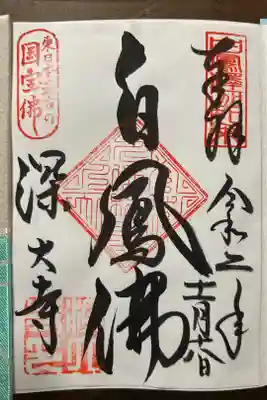 奉拝
令和二年
十一月
白鳳佛
東日本最古の
国宝佛
深大寺